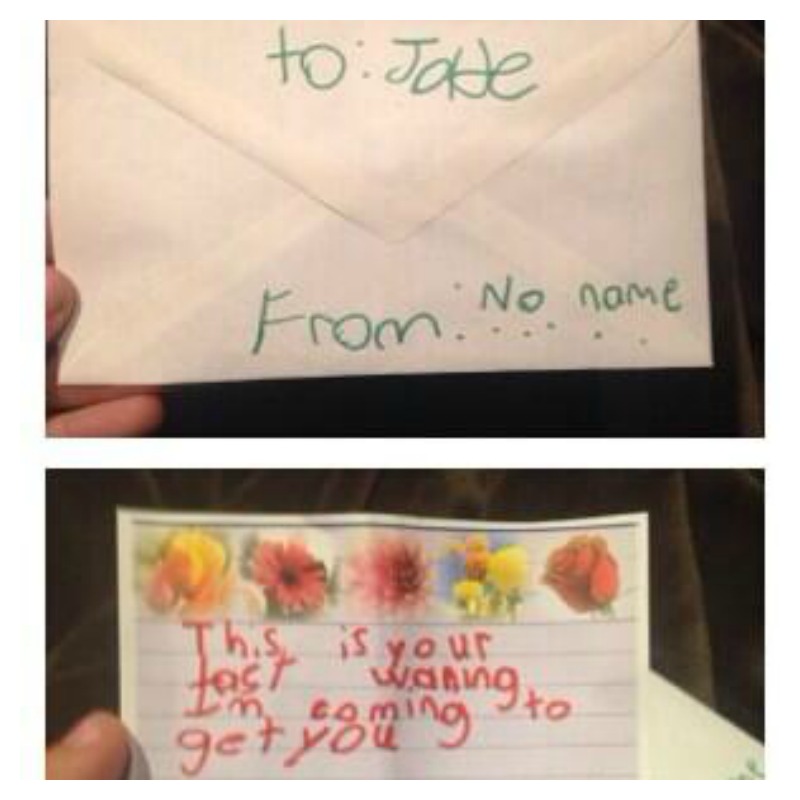 to: Jade
From: No name
This is your
last waning
I'm coming to
get you